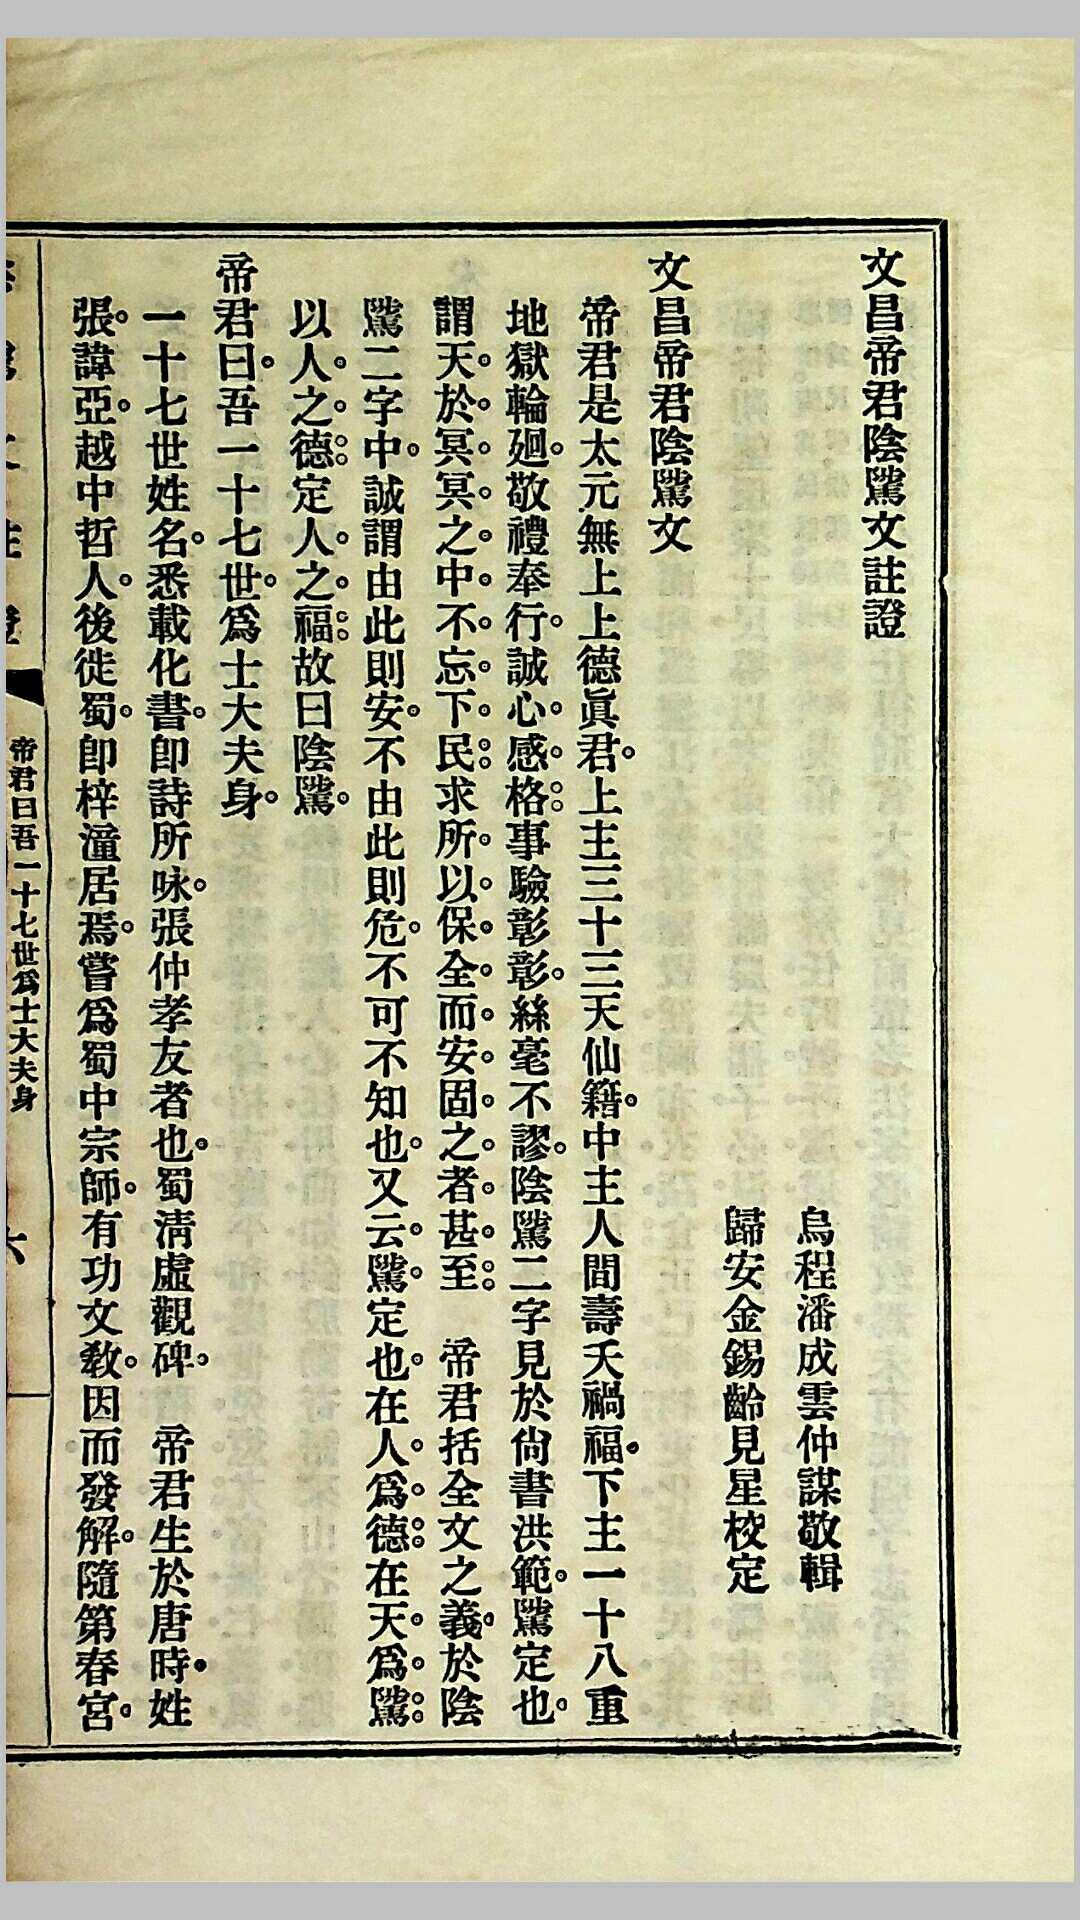 文昌帝君陰騭文註證
烏程潘成雲仲謀敬輯
歸安金錫齡見星校定
文昌帝君陰騭文
帝君是太元無上上德眞君。上主三十三天仙籍。中主人間壽夭禍福。下主一十八重
地獄輪廻。敬禮奉行。誠心感格。事驗彰彰。絲毫不謬。陰騭二字見於尙書洪範。騭定也。
謂天於冥冥之中不忘下民。求所以保全而安固之者甚至。 帝君括全文之義。於陰
騭二字中。誠謂由此則安。不由此則危。不可不知也。又云。騭。定也。在人爲德。在天爲騭。
以人之德。定人之福。故曰陰騭。
帝君曰。吾一十七世。爲士大夫身。
一十七世姓名。悉載化書。卽詩所咏。張仲孝友者也。蜀淸虛觀碑。 帝君生於唐時。姓
張。諱亞。越中哲人。後徙蜀。卽梓潼居焉。嘗爲蜀中宗師。有功文教。因而發解。隨第春宮。
帝君曰吾一十七世爲士大夫身
六